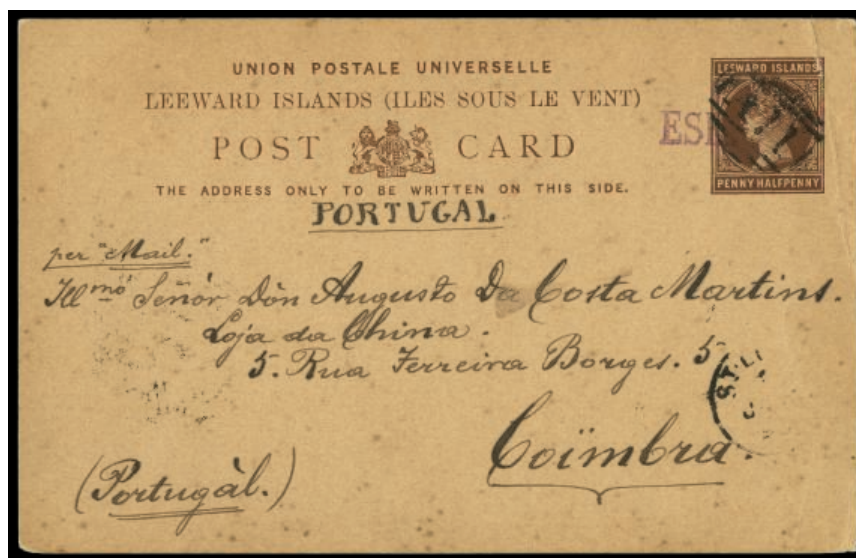 UNION POSTALE UNIVERSELLE
LEEWARD ISLANDS (ILES SOUS LE VENT)
POST CARD
THE ADDRESS ONLY TO BE WRITTEN ON THIS SIDE.
LEEWARD ISLANDS
PENNY HALFPENNY
PORTUGAL
per "Mail."
Illmo Señór Dòn Augusto Da Costa Martins.
Loja da China.
5. Rua Ferreira Borges. 5
Coïmbra.
(Portugàl.)